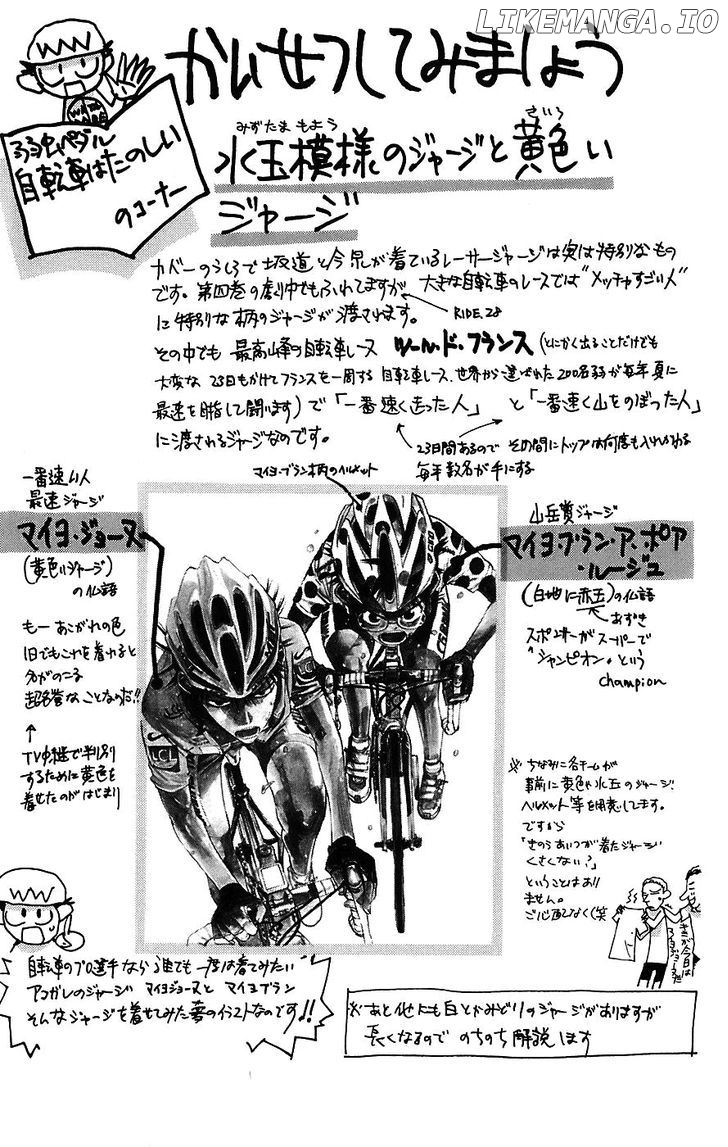 LIKEMANGA.IO
かいせつしてみましょう
弱虫ペダル
自転車はたのしい
のコーナー
みずたま もよう
きいろ
水玉模様のジャージと黄色い
ジャージ
カバーのうしろで坂道と今泉が着ているレーサージャージは実は特別なもの
です。第四巻の劇中でもふれてますが、大きな自転車のレースでは"メッチャすごい人"
に特別な柄のジャージが渡されます。
RIDE.28
その中でも 最高峰の自転車レース ツール・ド・フランス (とにかく出ることだけでも
大変な 23日もかけてフランスを一周する 自転車レース、世界から選ばれた200名弱が毎年夏に
最速を目指して闘います)で「一番速く走った人」と「一番速く山をのぼった人」
に渡されるジャージなのです。
23日間あるので その間にトップは何度も入れかわる
毎年数名が手にする
マイヨ・ブラン柄のヘルメット
一番速い人
最速ジャージ
マイヨ・ジョーヌ
(黄色いジャージ)
の仏語
もー あこがれの色
1日でもこれを着れると
名がのこる
超名誉なことなのだ!!
TV中継で判別
するために黄色を
着せたのがはじまり
山岳賞ジャージ
マイヨ・ブラン・ア・ポア
・ルージュ
(白地に赤玉)の仏語
あずき
スポンサーがスーパーで
"シャンピオン"という
champion
※ちなみに各チームが
事前に黄色や水玉のジャージ、
ヘルメット等を用意してます。
ですから
「きのうあいつが着たジャージ
くさくない?」
ということはあり
ません。
ご心配なく(笑
自転車のプロ選手なら誰でも一度は着てみたい
アコガレのジャージ マイヨジョーヌと マイヨブラン
そんなジャージを着せてみた夢のイラストなのです!!
※あと他にも白とかみどりのジャージがありますが
長くなるので のちのち解説します